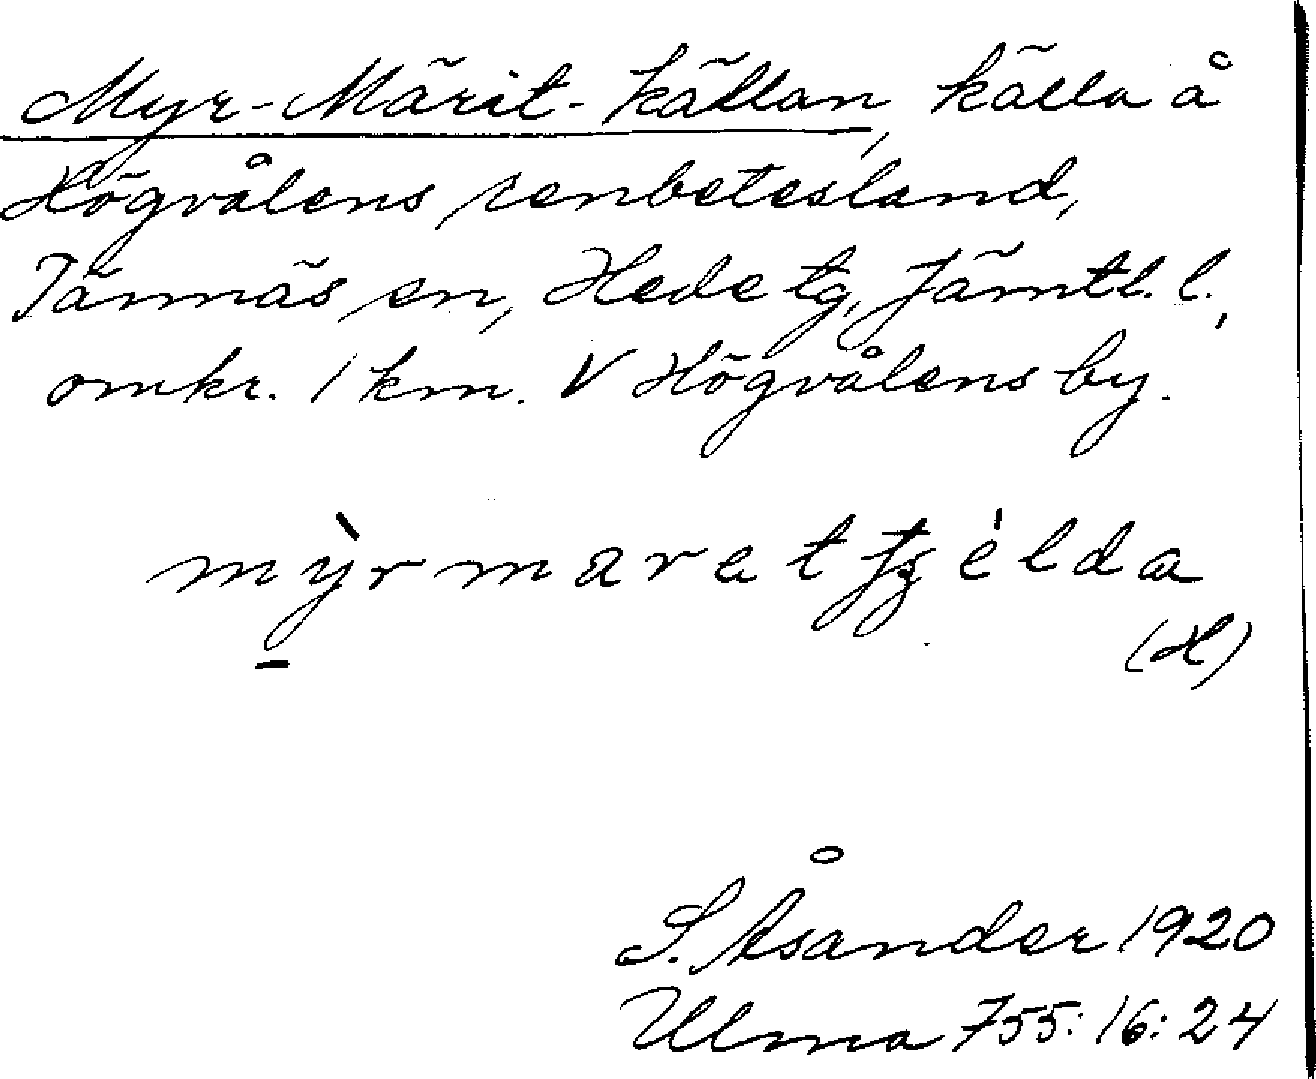 Myr-Märit-källan, källa å
Högvålens renbetesland,
Tännäs sn, Hede tg, Jämtl. l.,
omkr. 1 km. V Högvålens by.
mỳ̱rmaret èlda
(H)
S. Åsander 1920
Ulma 755:16:24